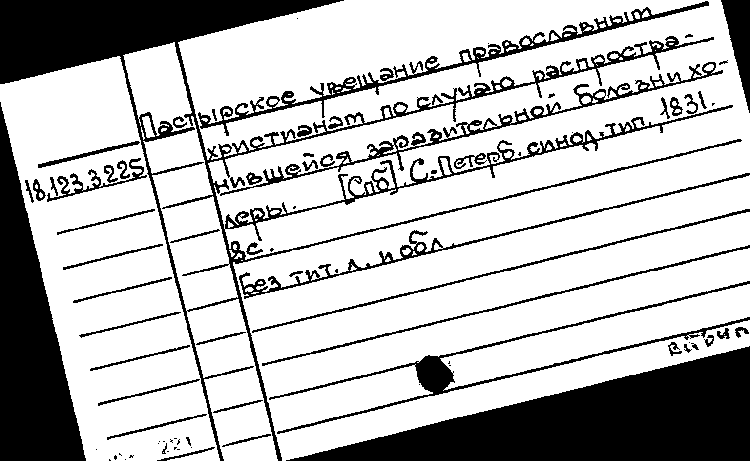 Пастырское увещание православным
христианам по случаю распростра-
18.123.3.225
нившейся заразительной болезни хо-
леры. [Спб]. С.-Петерб. синод. тип., 1831.
8с.
Без тит. л. и обл.
221